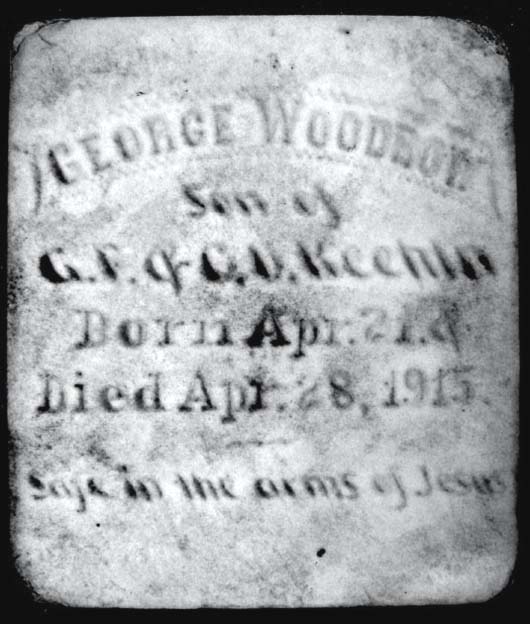 GEORGE WOODROE
Son of
G.F. & C.D. Keehln
Born Apr. 21. &
Died Apr. 28, 1915.
Safe in the arms of Jesus